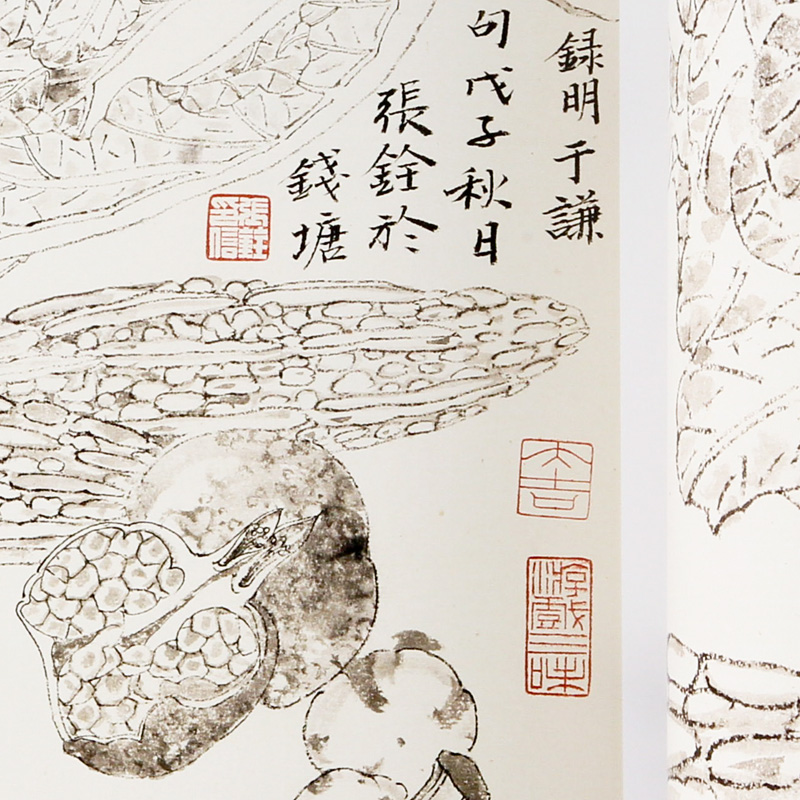 録明于謙
句戊子秋日
張銓於
錢塘
張銓
印信
大吉
游戲三昧